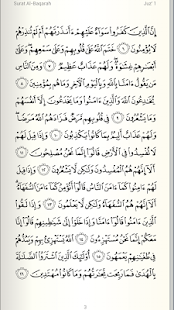 Surat Al-Baqarah Juz 1
إِنَّ ٱلَّذِينَ كَفَرُوا۟ سَوَآءٌ عَلَيْهِمْ ءَأَنذَرْتَهُمْ أَمْ لَمْ تُنذِرْهُمْ
لَا يُؤْمِنُونَ ٦ خَتَمَ ٱللَّهُ عَلَىٰ قُلُوبِهِمْ وَعَلَىٰ سَمْعِهِمْ وَعَلَىٰٓ
أَبْصَٰرِهِمْ غِشَٰوَةٌ وَلَهُمْ عَذَابٌ عَظِيمٌ ٧ وَمِنَ ٱلنَّاسِ
مَن يَقُولُ ءَامَنَّا بِٱللَّهِ وَبِٱلْيَوْمِ ٱلْءَاخِرِ وَمَا هُم بِمُؤْمِنِينَ ٨
يُخَٰدِعُونَ ٱللَّهَ وَٱلَّذِينَ ءَامَنُوا۟ وَمَا يَخْدَعُونَ إِلَّآ أَنفُسَهُمْ
وَمَا يَشْعُرُونَ ٩ فِى قُلُوبِهِم مَّرَضٌ فَزَادَهُمُ ٱللَّهُ مَرَضًا
وَلَهُمْ عَذَابٌ أَلِيمٌۢ بِمَا كَانُوا۟ يَكْذِبُونَ ١٠ وَإِذَا قِيلَ لَهُمْ
لَا تُفْسِدُوا۟ فِى ٱلْأَرْضِ قَالُوٓا۟ إِنَّمَا نَحْنُ مُصْلِحُونَ ١١
أَلَآ إِنَّهُمْ هُمُ ٱلْمُفْسِدُونَ وَلَٰكِن لَّا يَشْعُرُونَ ١٢ وَإِذَا قِيلَ
لَهُمْ ءَامِنُوا۟ كَمَآ ءَامَنَ ٱلنَّاسُ قَالُوٓا۟ أَنُؤْمِنُ كَمَآ ءَامَنَ ٱلسُّفَهَآءُ
أَلَآ إِنَّهُمْ هُمُ ٱلسُّفَهَآءُ وَلَٰكِن لَّا يَعْلَمُونَ ١٣ وَإِذَا لَقُوا۟
ٱلَّذِينَ ءَامَنُوا۟ قَالُوٓا۟ ءَامَنَّا وَإِذَا خَلَوْا۟ إِلَىٰ شَيَٰطِينِهِمْ قَالُوٓا۟ إِنَّا
مَعَكُمْ إِنَّمَا نَحْنُ مُسْتَهْزِءُونَ ١٤ ٱللَّهُ يَسْتَهْزِئُ بِهِمْ وَيَمُدُّهُمْ
فِى طُغْيَٰنِهِمْ يَعْمَهُونَ ١٥ أُو۟لَٰٓئِكَ ٱلَّذِينَ ٱشْتَرَوُا۟ ٱلضَّلَٰلَةَ
بِٱلْهُدَىٰ فَمَا رَبِحَت تِّجَٰرَتُهُمْ وَمَا كَانُوا۟ مُهْتَدِينَ ١٦
3